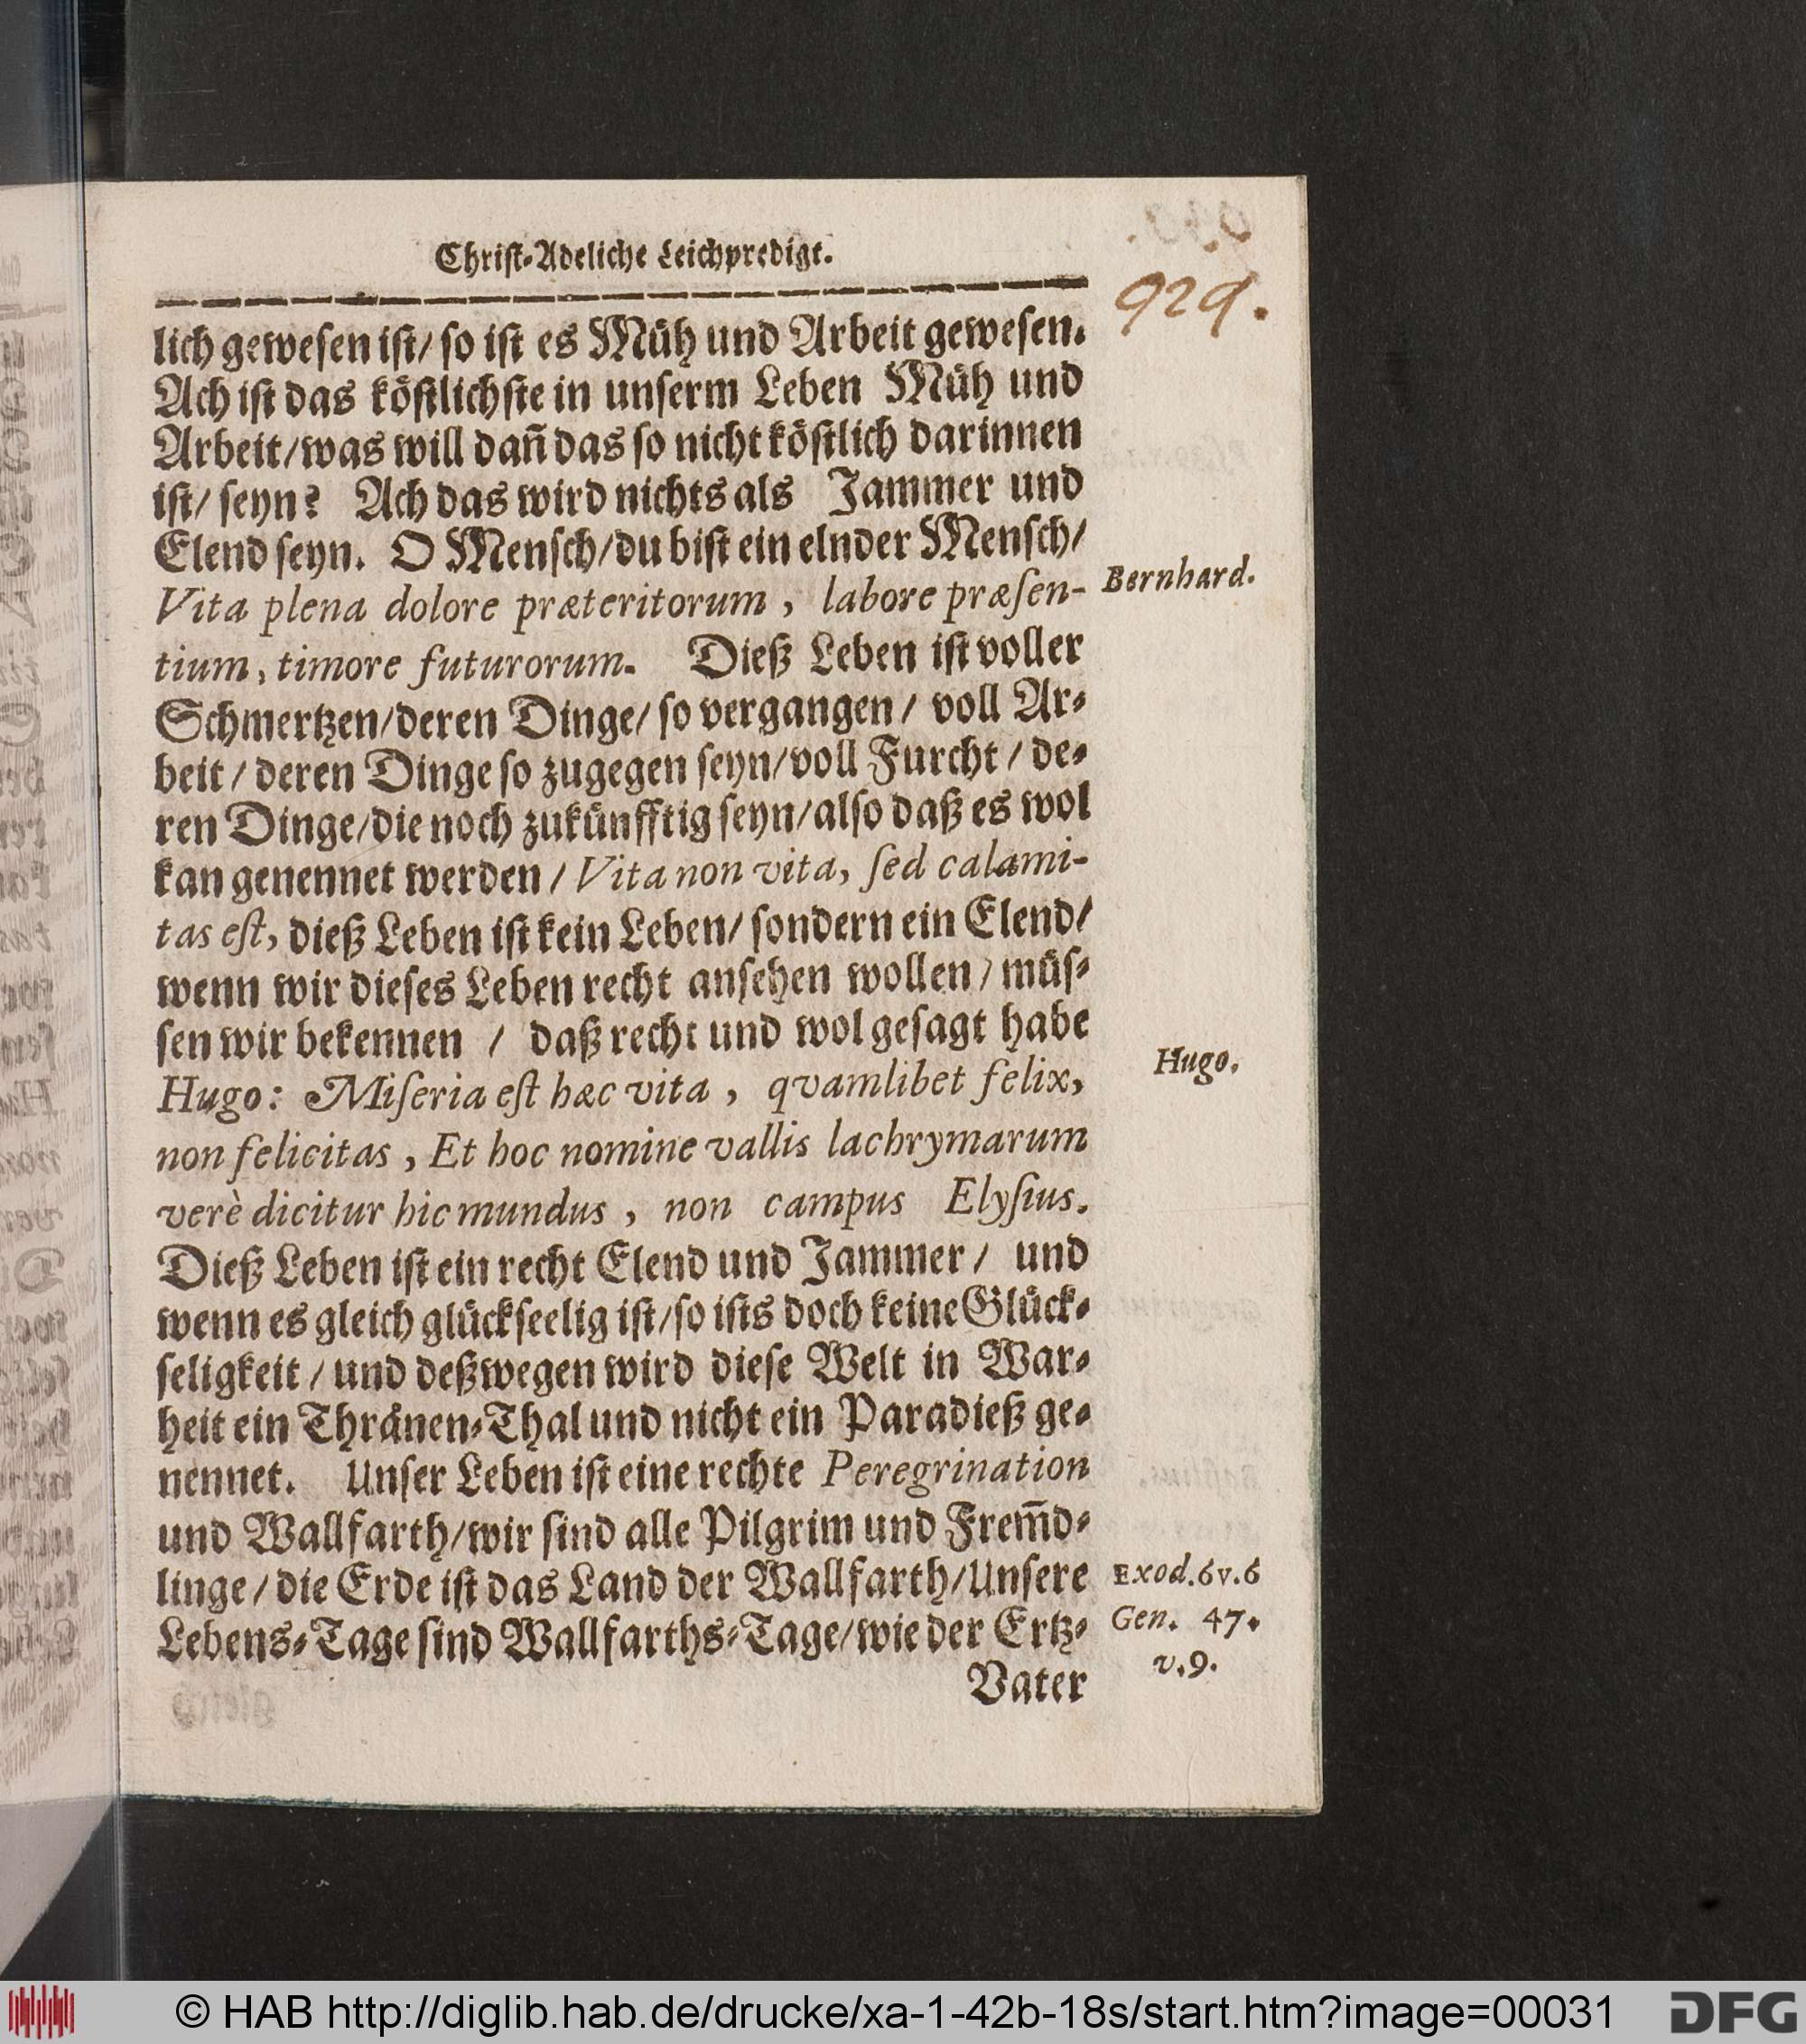 Christ-Adeliche Leichpredigt.
929.
lich gewesen ist/ so ist es Müh und Arbeit gewesen.
Ach ist das köstlichste in unserm Leben Müh und
Arbeit/was will dañ das so nicht köstlich darinnen
ist/ seyn? Ach das wird nichts als Jammer und
Elend seyn. O Mensch/du bist ein elnder Mensch/
Vita plena dolore præteritorum, labore præſen-
Bernhard.
tium, timore futurorum. Dieß Leben ist voller
Schmertzen/deren Dinge/ so vergangen/ voll Ar-
beit/ deren Dinge so zugegen seyn/voll Furcht/ de-
ren Dinge/die noch zukünfftig seyn/also daß es wol
kan genennet werden/ Vita non vita, ſed calami-
tas eſt, dieß Leben ist kein Leben/ sondern ein Elend/
wenn wir dieses Leben recht ansehen wollen/ müs-
sen wir bekennen / daß recht und wol gesagt habe
Hugo: Miſeria eſt hæc vita, qvamlibet felix,
Hugo.
non felicitas, Et hoc nomine vallis lachrymarum
verè dicitur hic mundus, non campus Elyſius.
Dieß Leben ist ein recht Elend und Jammer/ und
wenn es gleich glückseelig ist/so ists doch keine Glück-
seligkeit/ und deßwegen wird diese Welt in War-
heit ein Thränen-Thal und nicht ein Paradieß ge-
nennet. Unser Leben ist eine rechte Peregrination
und Wallfarth/wir sind alle Pilgrim und Frem̄d-
linge/ die Erde ist das Land der Wallfarth/Unsere
Exod.6v.6
Lebens-Tage sind Wallfarths-Tage/wie der Ertz-
Gen. 47.
v.9.
Vater
© HAB http://diglib.hab.de/drucke/xa-1-42b-18s/start.htm?image=00031
DFG